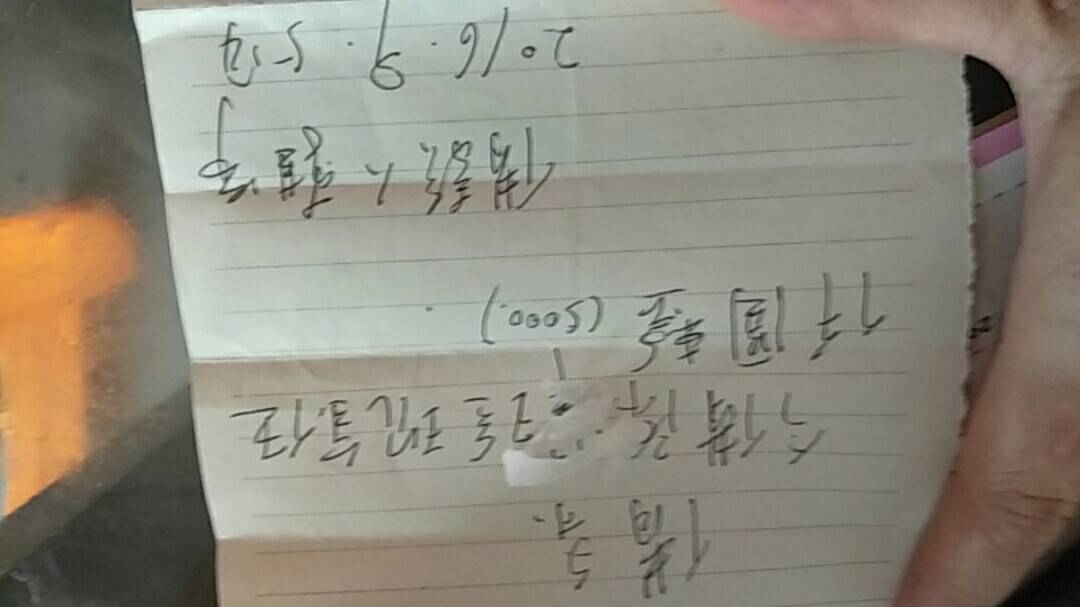 借条
今借陈 现金伍
仟圆整 (5000.).
借款人
2016.9.5日